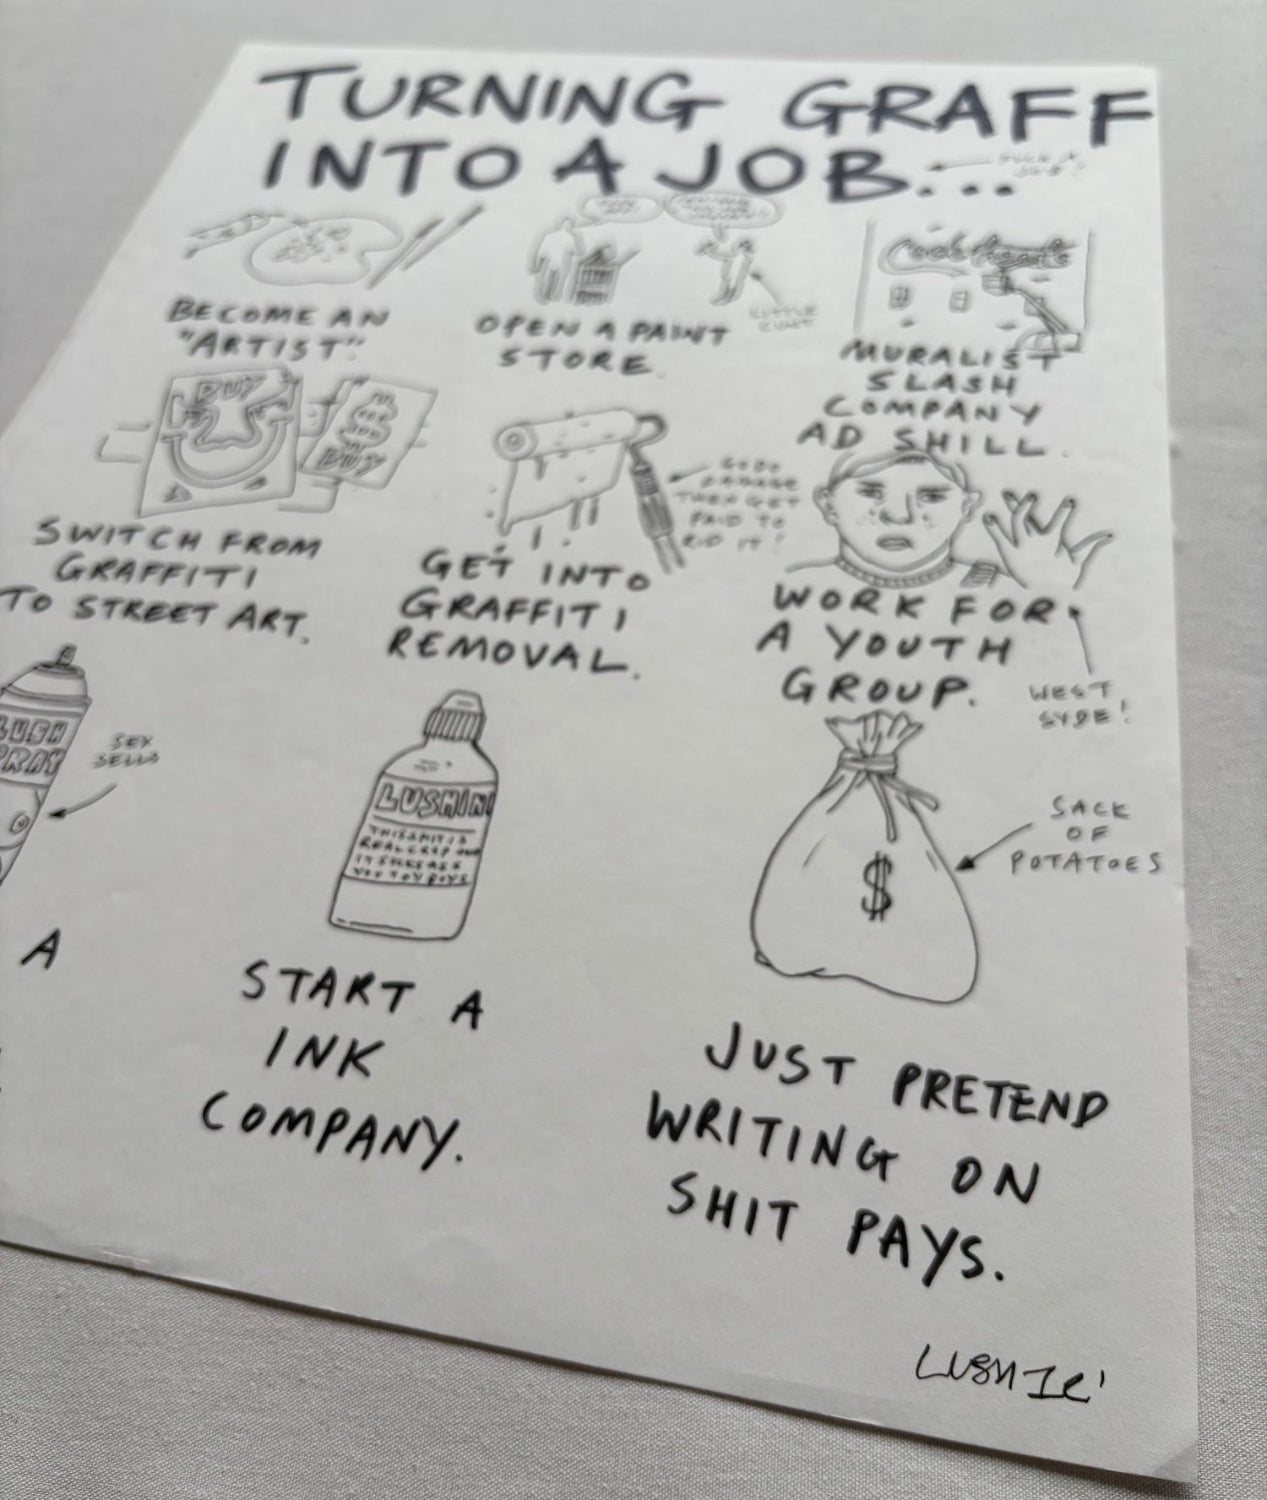 TURNING GRAFF
INTO A JOB...
BECOME AN
"ARTIST".
OPEN A PAINT
STORE.
LITTLE
CUNT.
MURALIST
SLASH
COMPANY
AD SHILL.
BUY
BUY
SWITCH FROM
GRAFFITI
TO STREET ART.
GET INTO
GRAFFITI
REMOVAL.
GO DO
DAMAGE
THEN GET
PAID TO
RID IT!
WORK FOR
A YOUTH
GROUP.
WEST
SYDE!
LUSH
PRAY
SEX
SELLS
A
LUSHINK
THIS SHIT IS
REAL CRAP
IT SUCKS ASS
YOU TOY BOYS
START A
INK
COMPANY.
$
SACK
OF
POTATOES
JUST PRETEND
WRITING ON
SHIT PAYS.